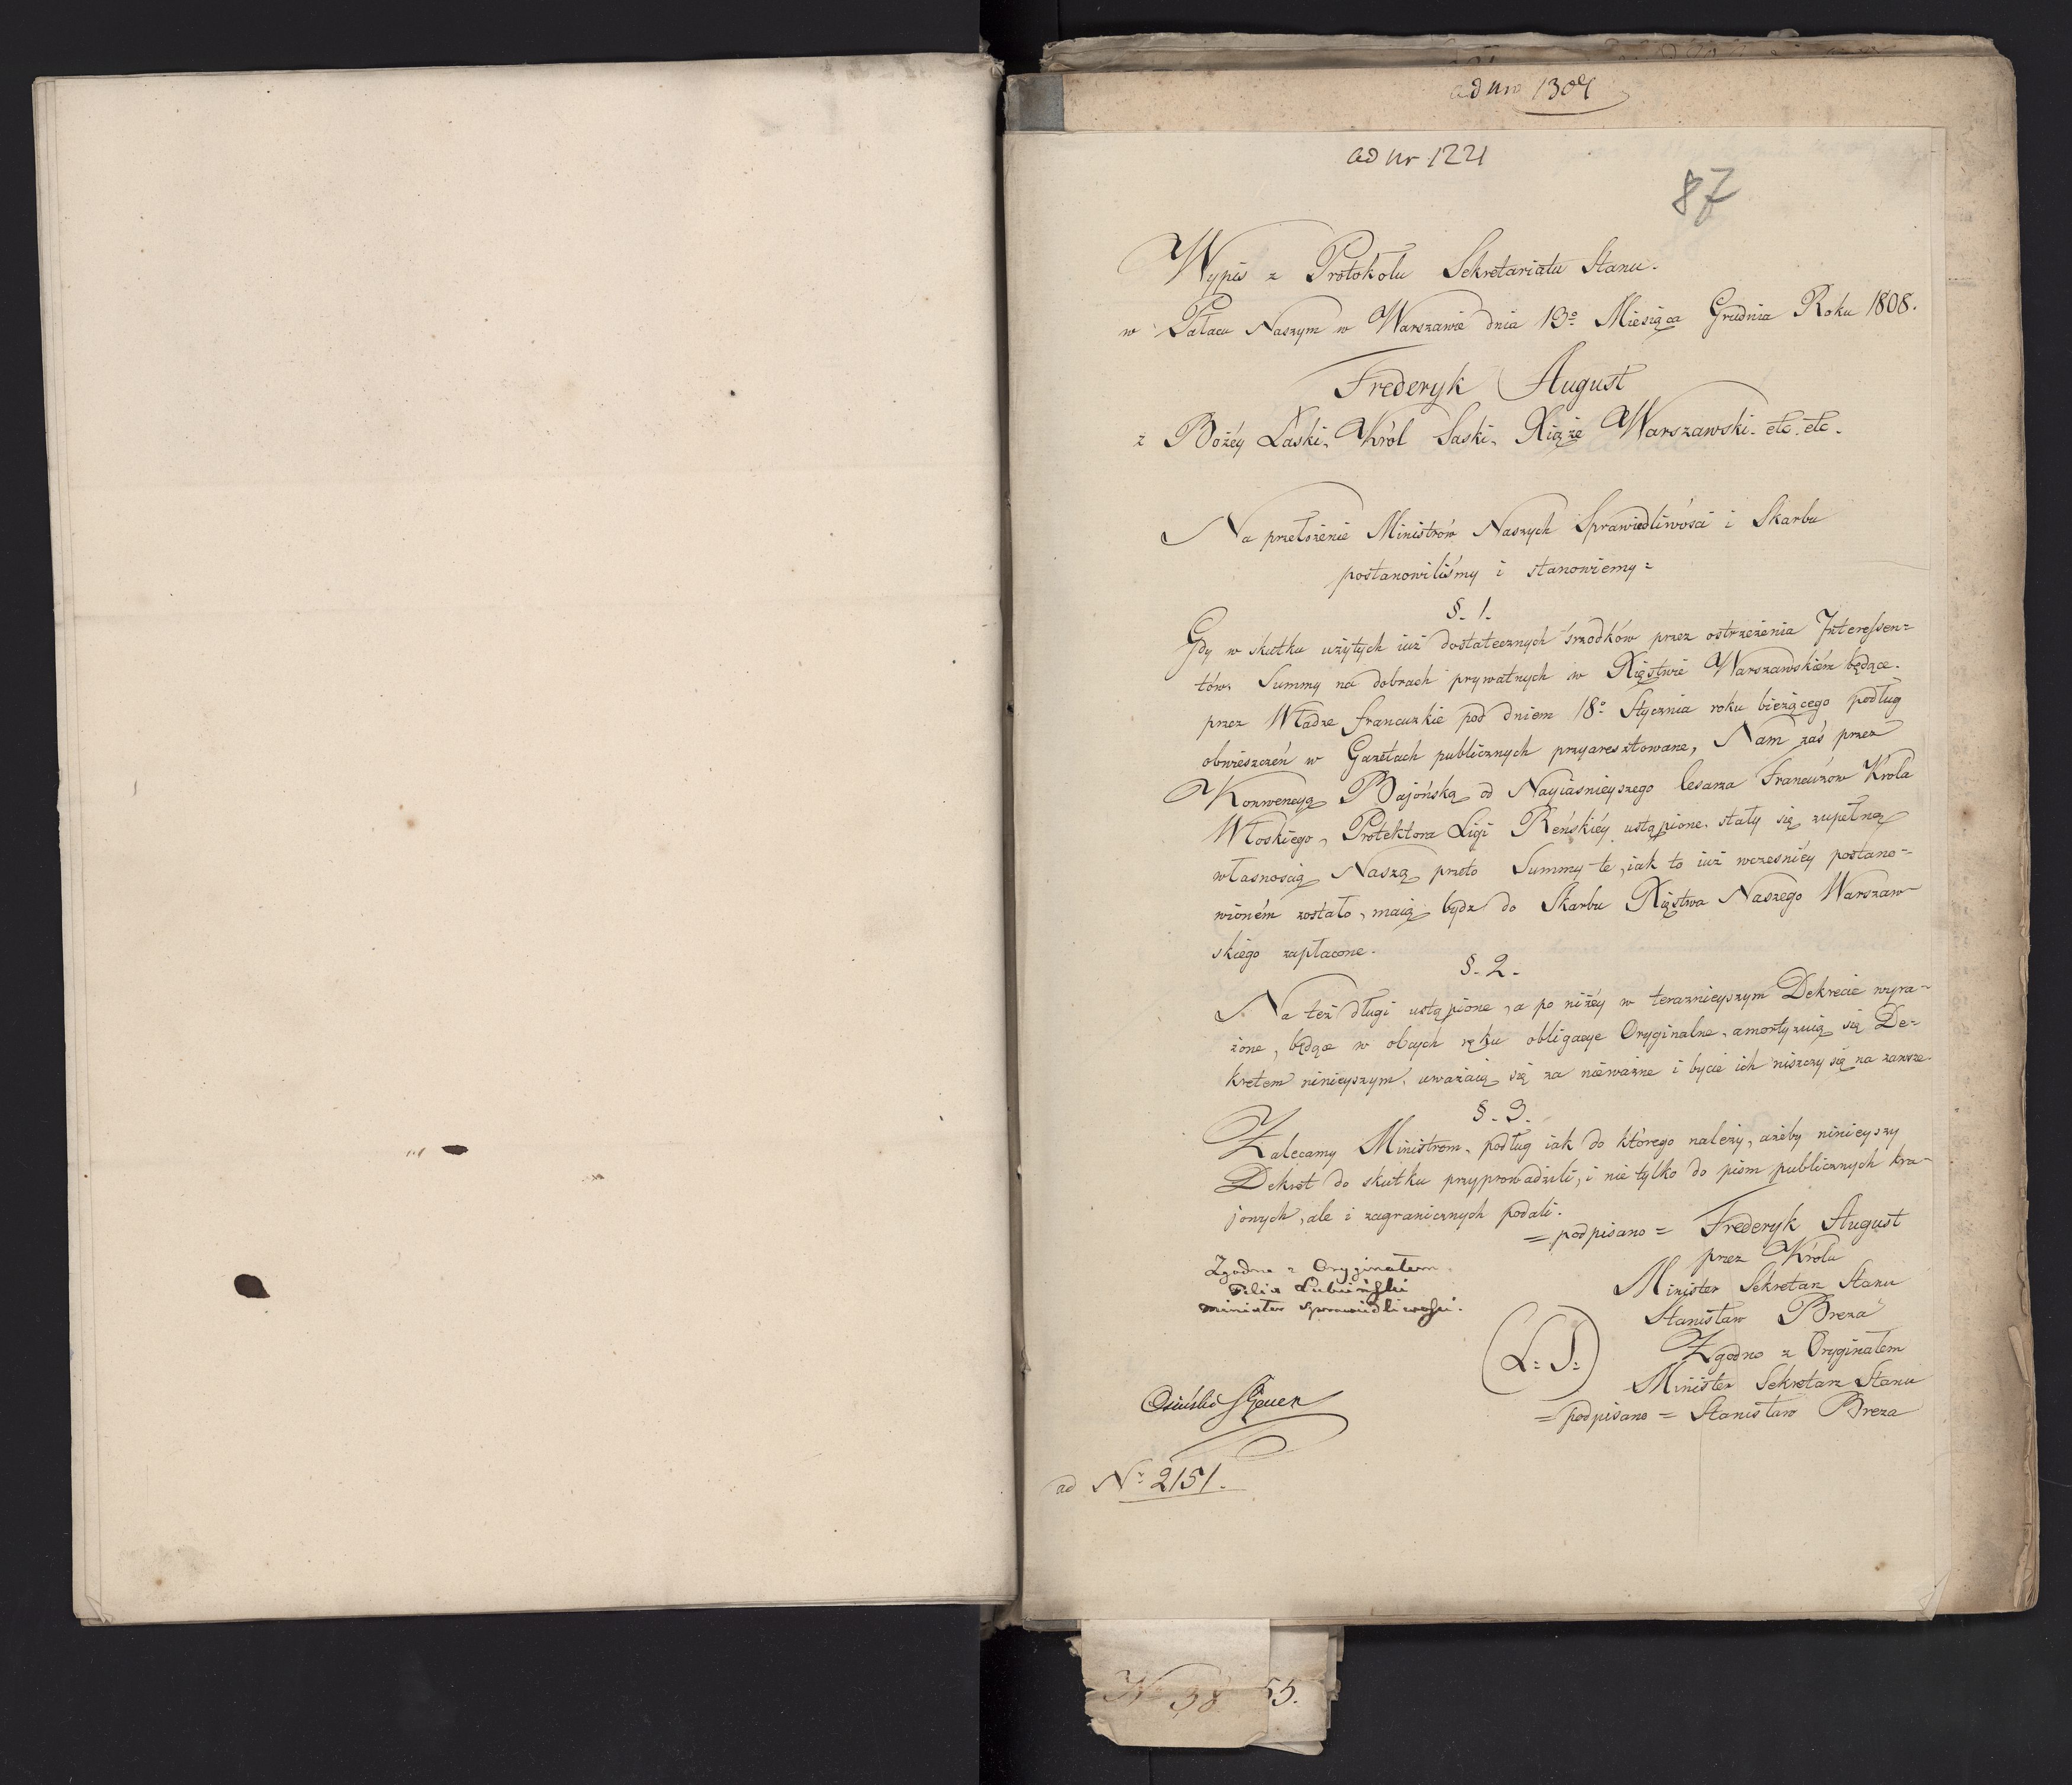 ad nro 1304
ad nr 1221
87
Wypis z Protokołu Sekretariatu Stanu.
w Pałacu Naszym w Warszawie dnia 13º Miesiąca Grudnia Roku 1808.
Frederyk August
z Bożéy Łaski, Król Saski, Xiąże Warszawski. etc. etc.
Na przełożenie Ministrów Naszych Sprawiedliwości i Skarbu
postanowiliśmy i stanowiemy =
§. 1.
Gdy w skutku użytych iuż dostatecznych śrzodków przez ostrzeżenia Interessen=
tów, Summy na dobrach prywatnych w Xięstwie Warszawskiém będące.
przez Władze francuzkie pod dniem 18º Stycznia roku bieżącego podług
obwieszczeń w Gazetach publicznych przyaresztowane, Nam zaś przez
Konwencyą Bajońską od Nayiasnieyszego Cesarza Francuzów Króla
Włoskiego, Protektora Ligi Reńskiéy ustąpione, stały się zupełną
własnoscią Naszą przeto Summy te, iak to iuż wczesniéy postano=
wioném zostało, maią bydz do Skarbu Xięstwa Naszego Warszaw=
skiego zapłacone.
§. 2.
Na też długi ustąpione, a po niżéy w teraznieyszym Dekrecie wyra=
żone, będące w obcych ręku obligacye Oryginalne, amortyzuią się De=
kretem ninieyszym, uważaią się za nieważne i bycie ich niszczy się na zawsze.
§. 3.
Zalecamy Ministrom, podług iak do którego należy, ażeby ninieyszy
Dekret do skutku przyprowadzili, i nie tylko do pism publicznych kra=
jowych, ale i zagranicznych podali.
= podpisano = Frederyk August
przez Króla
Minister Sekretarz Stanu
Stanisław Breza
Zgodno z Oryginałem
Minister Sekretarz Stanu
= podpisano = Stanisław Breza
(L: S:)
Zgodno z Oryginałem
Felix Łubieński
minister Sprawiedliwości.
Osiński
ad Nº 2151.
Nº 38
55.